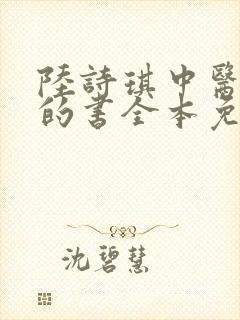 陸詩琪中醫
的書全本免
沈碧慧